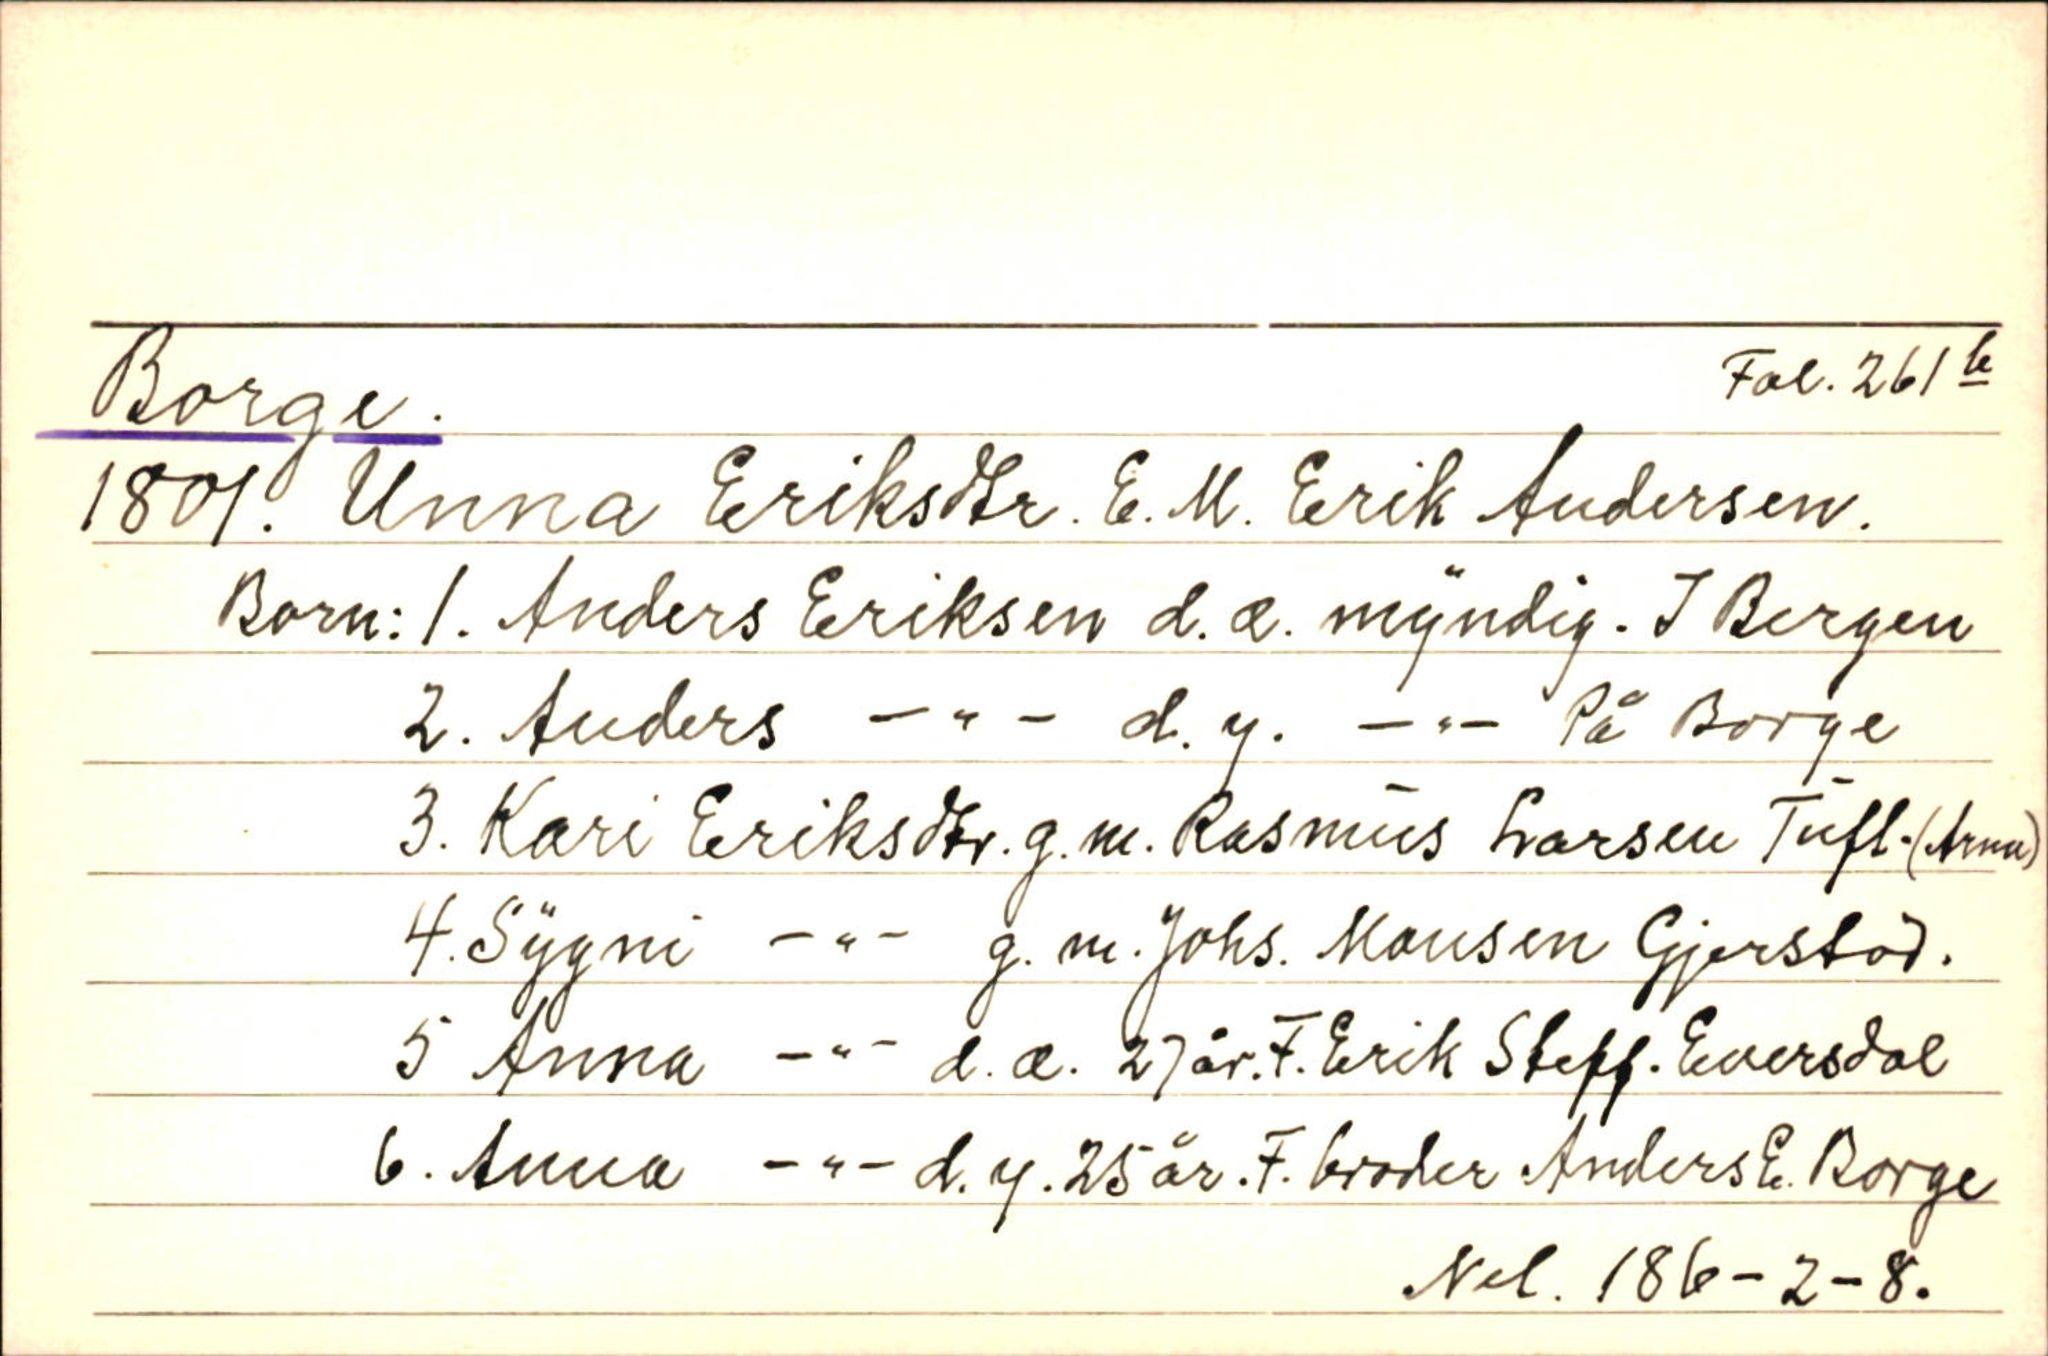 Borge. Fol. 261 b
1801. Unna Eriksdtr. E. M. Erik Andersen.
Born: 1. Anders Eriksen d. e. mÿndig. I Bergen
2. Anders —"— d. y. —"— På Borge
3. Kari Eriksdtr. g. m. Rasmus Larsen Tuft. (Arna)
4. Sÿgni —"— g. m. Johs. Monsen Gjerstad.
5 Anna —"— d. e. 27 år. F. Erik Steff. Eversdal
6. Anna —"— d. y. 25 år. F. broder Anders E. Borge
Nel. 186-2-8.